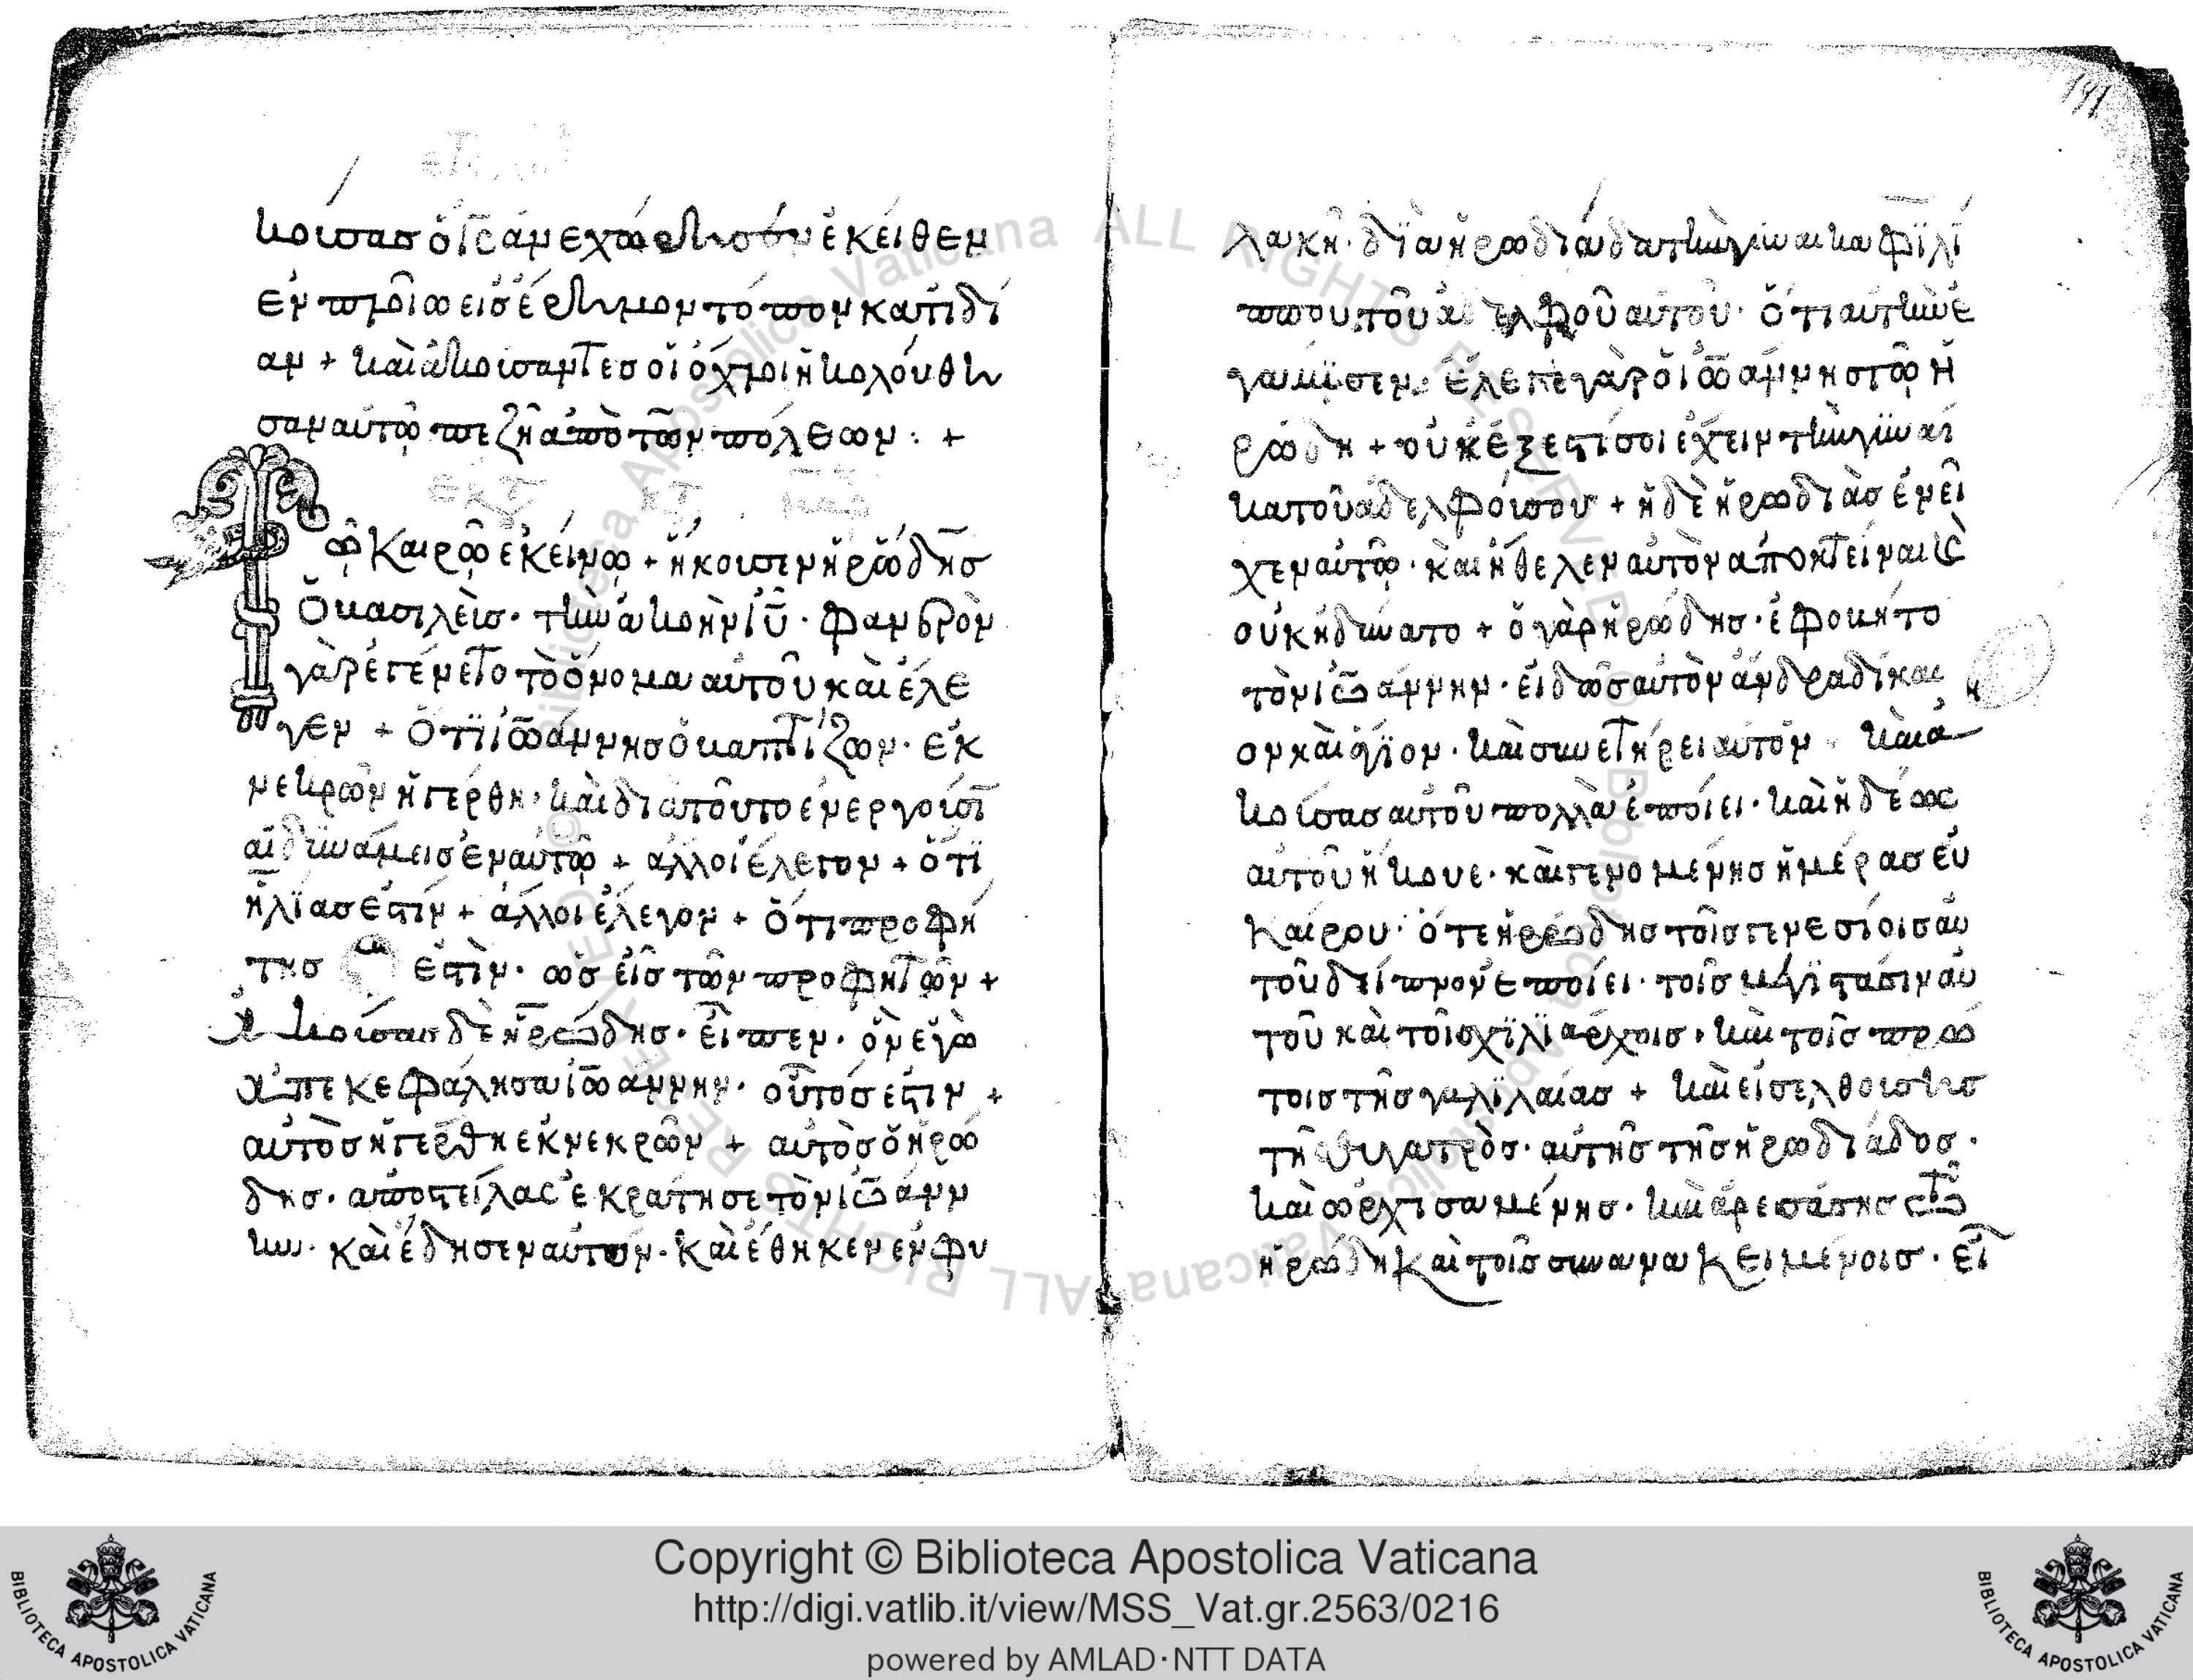 κούσας ὁ ι̅ς ἀνεχώρησεν ἐκεῖθεν
ἐν πλοίω εἰς ἔρημον τόπον κατιδί
αν + καὶ ἀκούσαντες οἱ ὄχλοι ἠκολούθη
σαν αὐτῶ πεζῆ ἀπὸ τῶν πόλεων : +
Τῶ καιρῶ ἐκείνω + ἤκουσεν ἡρώδης
ὁ βασιλεὺς · τὴν ἀκοὴν ι̅υ · φανερὸν
γὰρ ἐγένετο τὸ ὄνομα αὐτοῦ καὶ ἔλε
γεν + ὅτι ἰωάννης ὁ βαπτίζων · ἐκ
νεκρῶν ἠγέρθη · καὶ διατοῦτο ἐνεργοῦσι
αἱ δυνάμεις ἐν αὐτῶ + ἄλλοι ἔλεγον + ὅτι
ἠλίας ἐστίν + ἄλλοι ἔλεγον + ὅτι προφή
της ἐστὶν · ὡς εἷς τῶν προφητῶν +
ἀκούσας δὲ ἡρώδης · εἶπεν · ὃν ἐγὼ
ἀπεκεφάλησα ἰωάννην · οὗτός ἐστιν +
αὐτὸς ἠγέρθη ἐκ νεκρῶν + αὐτὸς ὁ ἡρώ
δης · ἀποστείλας ἐκράτησε τὸν ἰωάνν
ην · καὶ ἔδησεν αὐτὸν · καὶ ἔθηκεν ἐν φυ
191
λακῆ · διὰ ἡρωδιάδα τὴν γυναῖκα φιλί
ππου τοῦ ἀδελφοῦ αὐτοῦ · ὅτι αὐτὴν ἐ
γάμισεν · ἔλεγε γὰρ ὁ ἰωάννης τῶ ἡ
ρώδη + οὐκ ἔξεστί σοι ἔχειν τὴν γυναῖ
κα τοῦ ἀδελφοῦ σου + ἡ δὲ ἡρωδιὰς ἐνεῖ
χεν αὐτῶ · καὶ ἤθελεν αὐτὸν ἀποκτεῖναι κ(αὶ)
οὐκ ἠδύνατο + ὁ γὰρ ἡρώδης · ἐφοβεῖτο
τὸν ἰωάννην · εἰδὼς αὐτὸν ἄνδρα δίκαι
ον καὶ ἅγιον · καὶ συνετήρει αὐτόν · καὶ ἀ
κούσας αὐτοῦ πολλὰ ἐποίει · καὶ ἡδέως
αὐτοῦ ἤκουε · καὶ γενομένης ἡμέρας εὐ
καίρου · ὅτε ἡρώδης τοῖς γενεσίοις αὐ
τοῦ δεῖπνον ἐποίει · τοῖς μεγιστᾶσιν αὐ
τοῦ καὶ τοῖς χιλιάρχοις · καὶ τοῖς πρώ
τοις τῆς γαλιλαίας + καὶ εἰσελθούσης
τῆς θυγατρὸς · αὐτῆς τῆς ἡρωδιάδος ·
καὶ ὀρχισαμένης · καὶ ἀρεσάσης τῶ
ἡρώδη καὶ τοῖς συνανακειμένοις · εἶ
Copyright © Biblioteca Apostolica Vaticana
http://digi.vatlib.it/view/MSS_Vat.gr.2563/0216
powered by AMLAD·NTT DATA
BIBLIOTECA APOSTOLICA VATICANA
BIBLIOTECA APOSTOLICA VATICANA